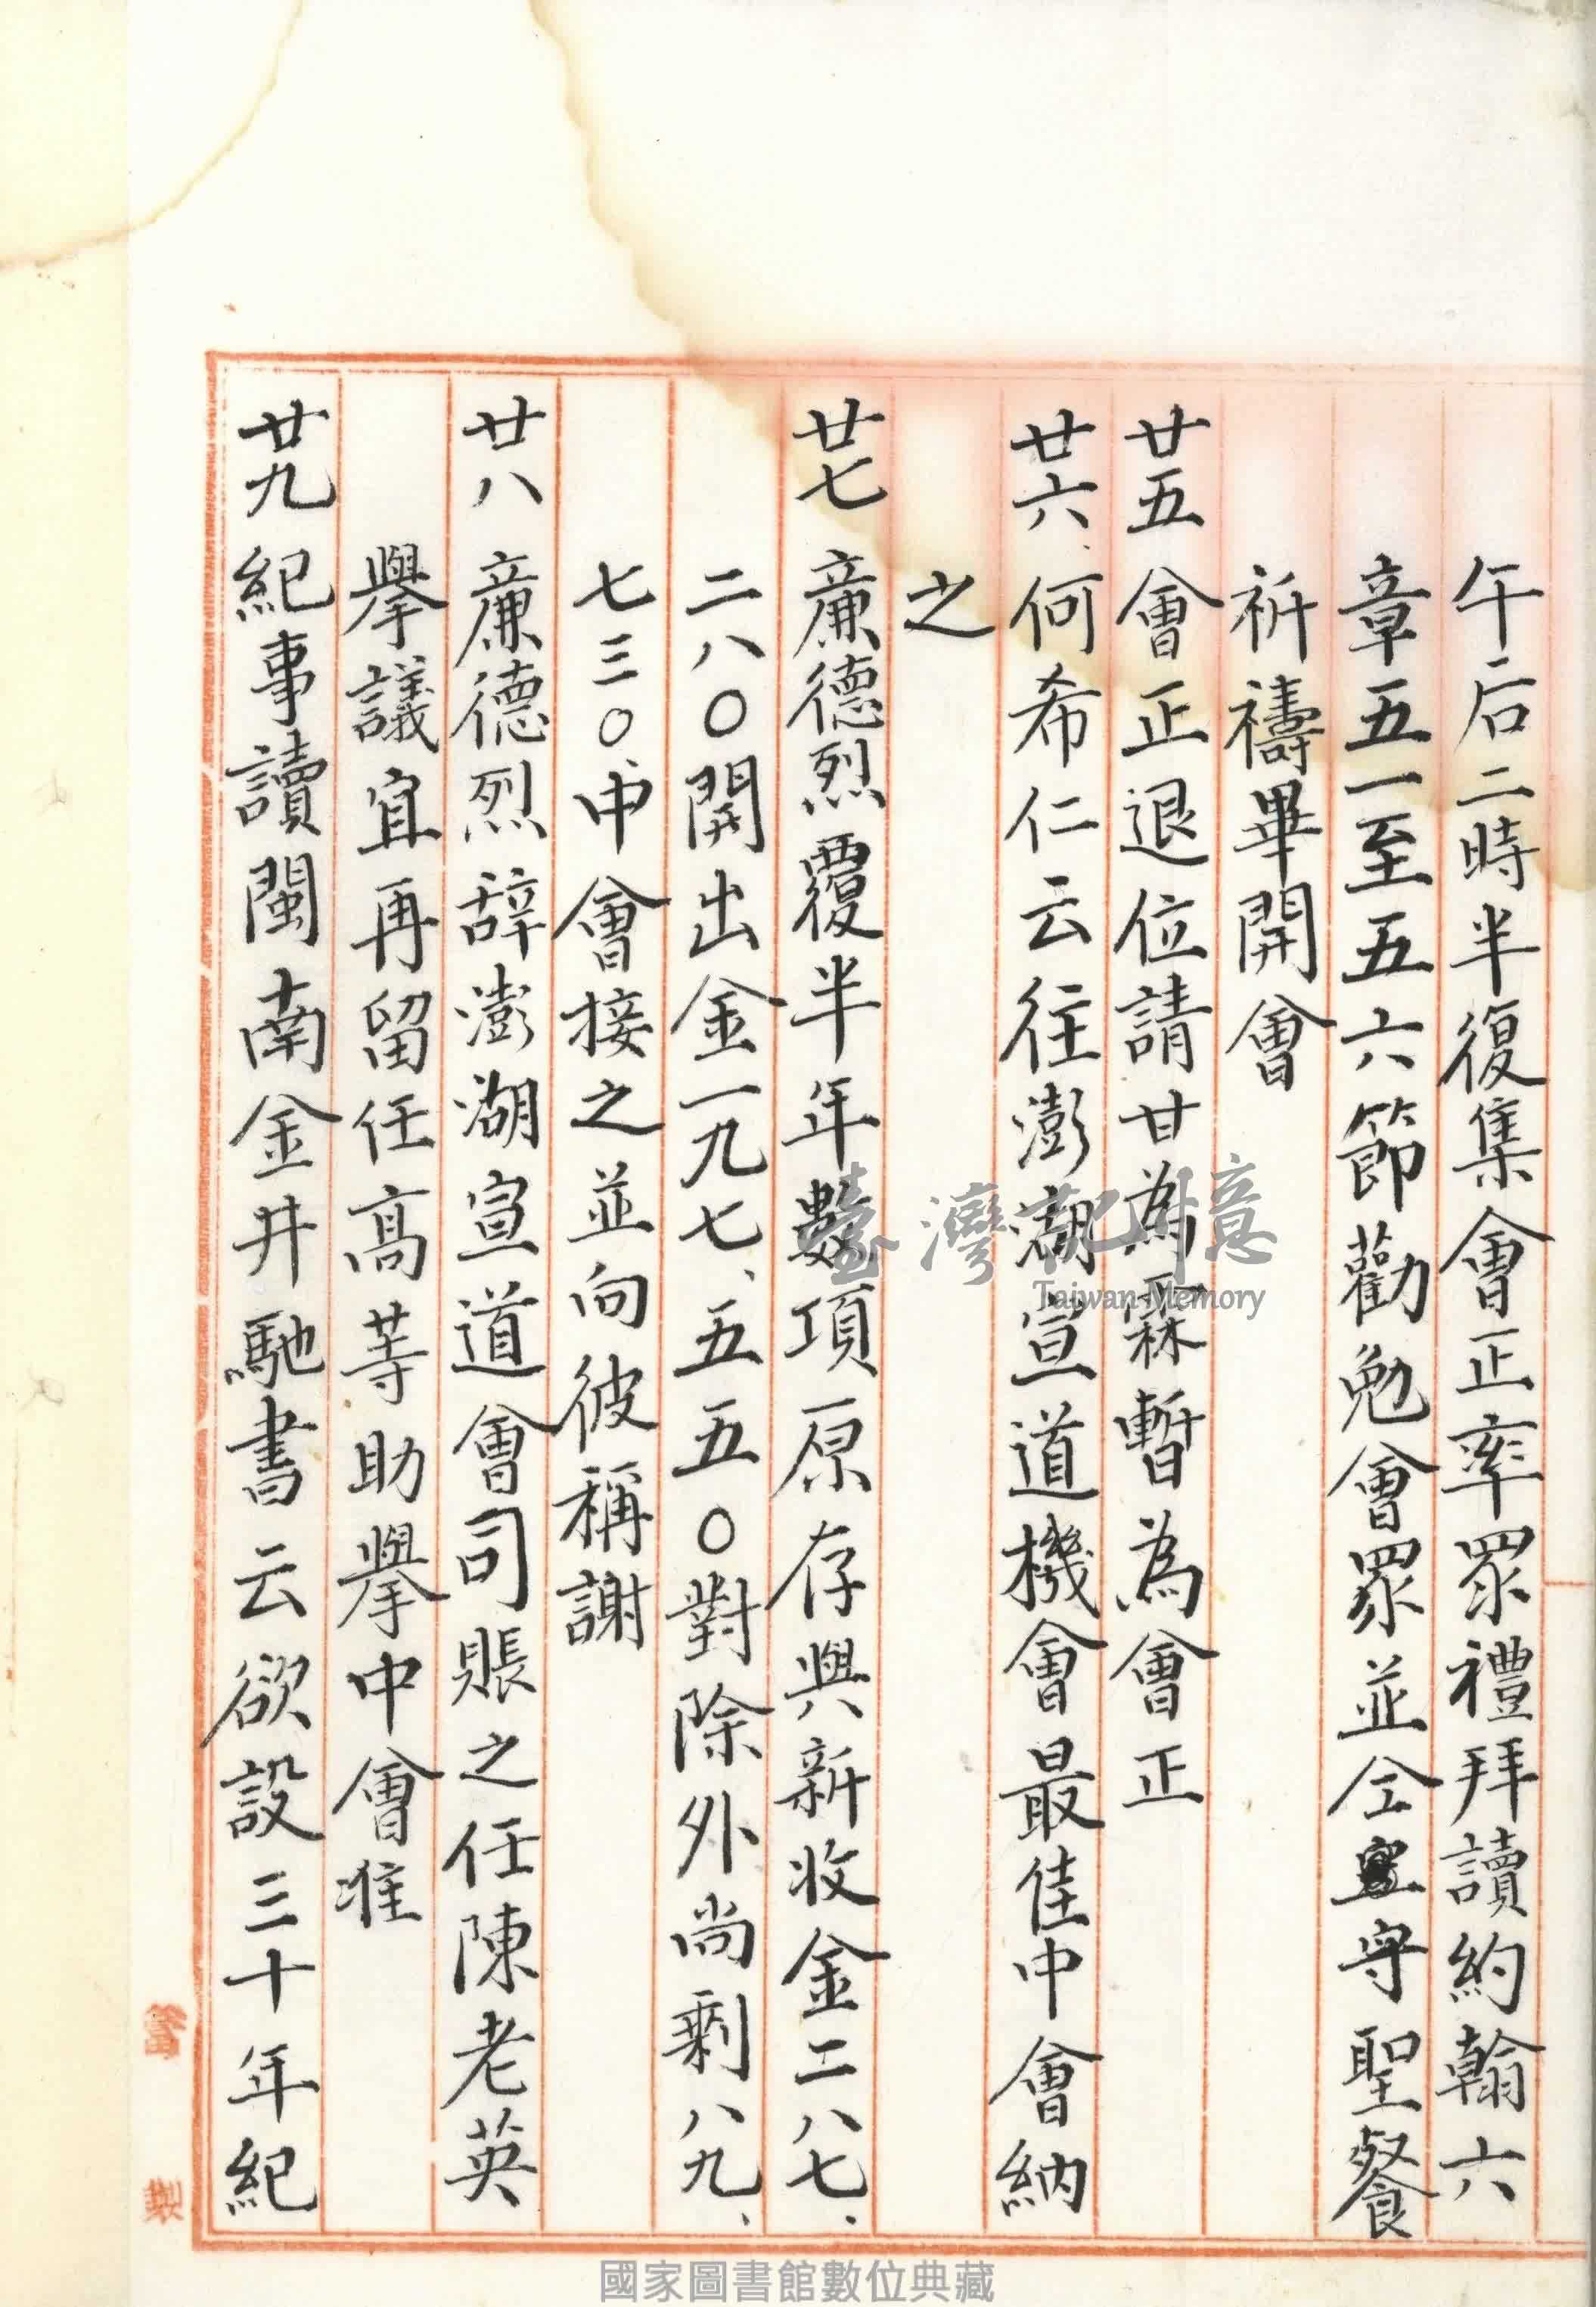 午后二時半復集會正率眾禮拜讀約翰六
章五一至五六節勸勉會眾並仝守聖餐
祈禱畢開會
廿五會正退位請甘為霖暫為會正
廿六何希仁云往澎湖宣道機會最佳中會納
之
廿七廉德烈覆半年數項原存與新收金二八七、
二八〇開出金一九七、五五〇對除外尚剩八九、
七三〇、中會接之並向彼稱謝
廿八廉德烈辞澎湖宣道會司賬之任陳老英
舉議宜再留任高䓁助舉中會准
廿九紀事讀閩南金井馳書云欲設三十年紀
臺灣記憶
Taiwan Memory
製
國家圖書館數位典藏